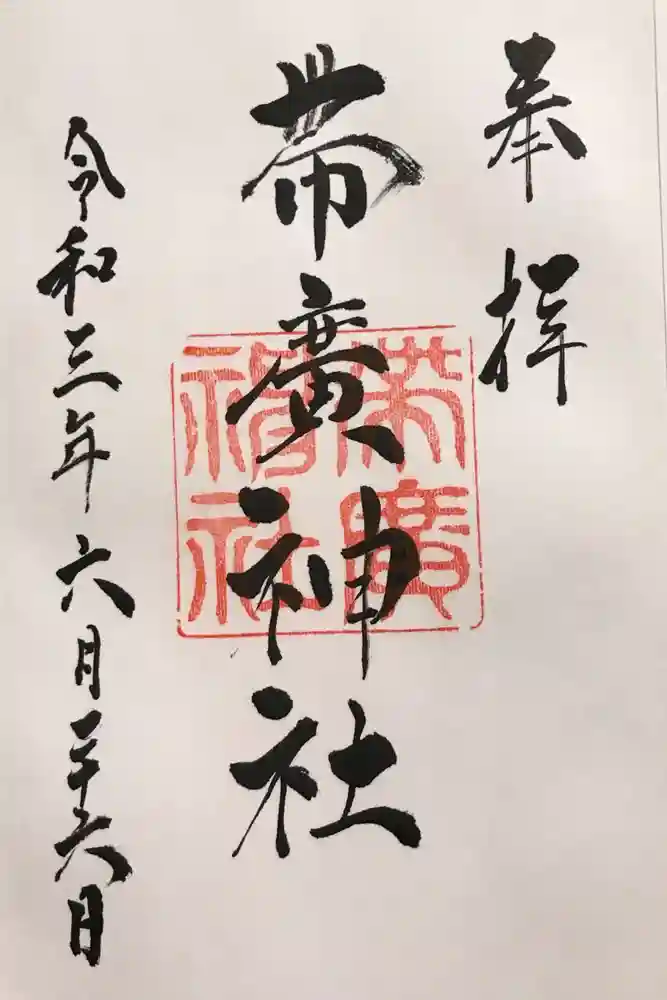 奉拝
帯廣神社
帯廣神社
令和三年六月二十六日